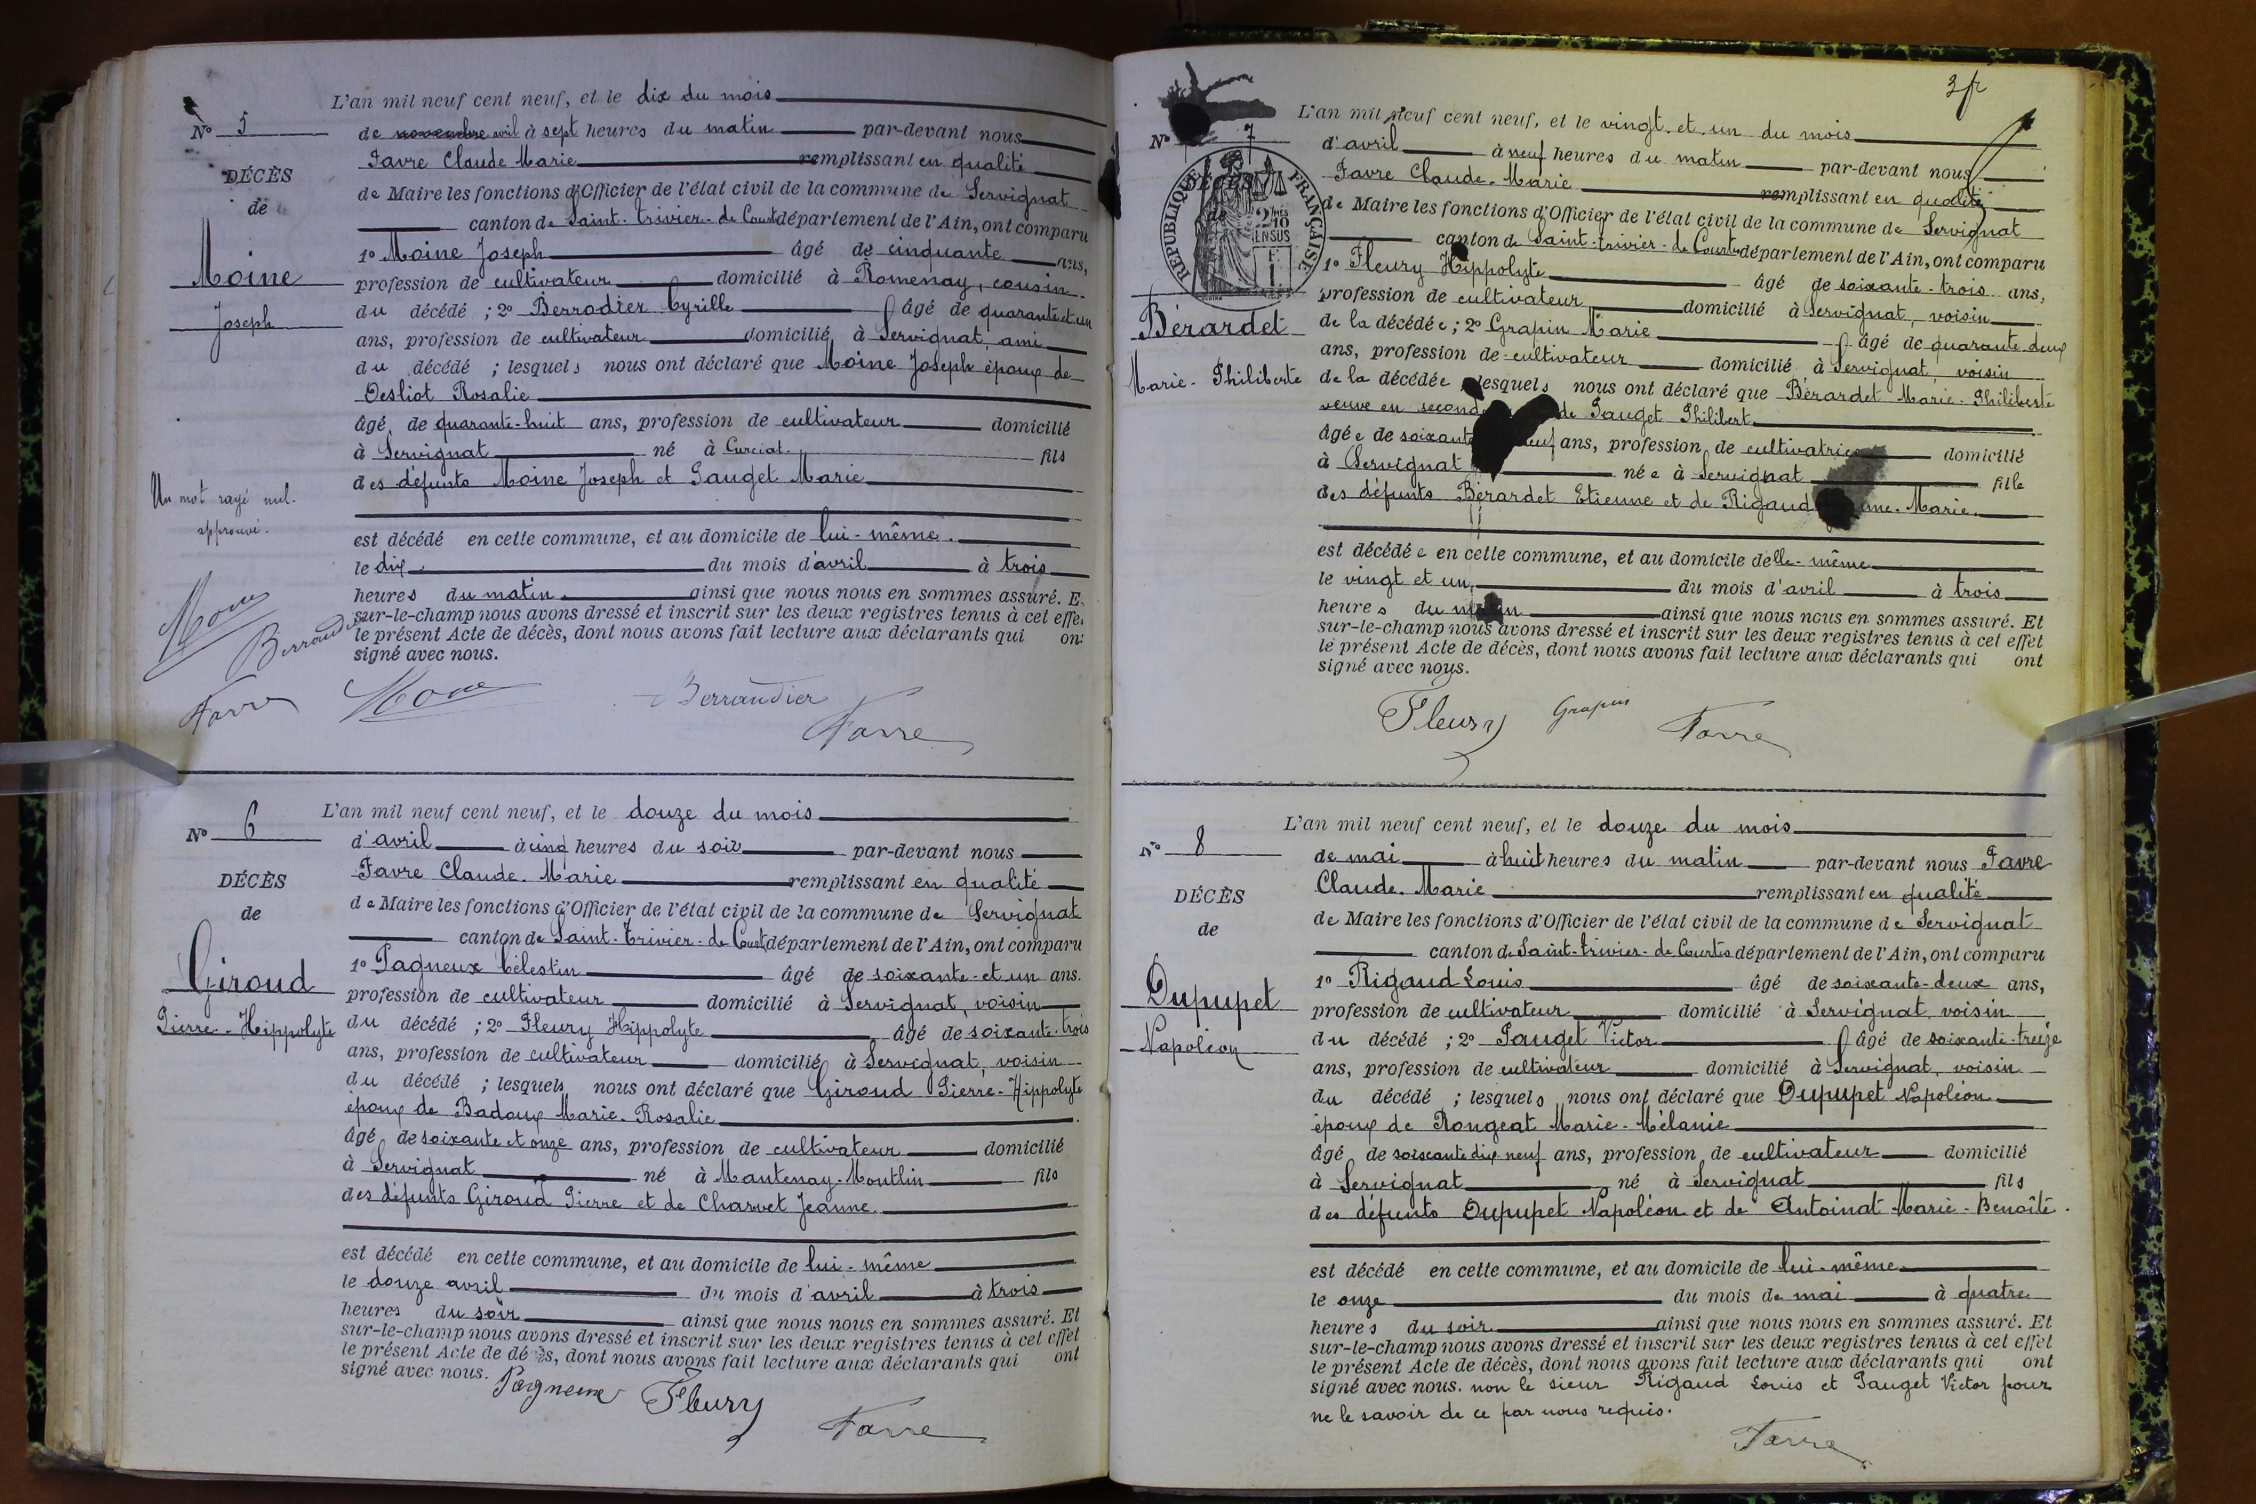 N° 5
DÉCÈS
de
Moine
Joseph
Un mot rayé nul.
approuvé.
L'an mil neuf cent neuf, et le dix du mois
de novembre avril à sept heures du matin par-devant nous
Favre Claude Marie remplissant en qualité
de Maire les fonctions d'Officier de l'état civil de la commune de Servignat
canton de Saint-Trivier-de-Courtes département de l'Ain, ont comparu
1° Moine Joseph âgé de cinquante ans,
profession de cultivateur domicilié à Romenay, cousin
du décédé ; 2° Berrodier Cyrille âgé de quarante et un
ans, profession de cultivateur domicilié à Servignat, ami
du décédé ; lesquels nous ont déclaré que Moine Joseph époux de
Desliot Rosalie
âgé de quarante-huit ans, profession de cultivateur domicilié
à Servignat né à Curciat fils
des défunts Moine Joseph et Pauget Marie
est décédé en cette commune, et au domicile de lui-même.
le dix du mois d'avril à trois
heures du matin ainsi que nous nous en sommes assuré. E
sur-le-champ nous avons dressé et inscrit sur les deux registres tenus à cet effet
le présent Acte de décès, dont nous avons fait lecture aux déclarants qui ont
signé avec nous.
Favre Berraudier
Favre
N° 6
DÉCÈS
de
Giroud
Pierre-Hippolyte
L'an mil neuf cent neuf, et le douze du mois
d'avril à cinq heures du soir par-devant nous
Favre Claude-Marie remplissant en qualité
de Maire les fonctions d'Officier de l'état civil de la commune de Servignat
canton de Saint-Trivier-de-Courtes département de l'Ain, ont comparu
1° Pagneux Célestin âgé de soixante-et un ans.
profession de cultivateur domicilié à Servignat, voisin
du décédé ; 2° Fleury Hippolyte âgé de soixante-trois
ans, profession de cultivateur domicilié à Servignat, voisin
du décédé ; lesquels nous ont déclaré que Giroud Pierre-Hippolyte
époux de Badoux Marie-Rosalie
âgé de soixante et onze ans, profession de cultivateur domicilié
à Servignat né à Mantenay-Montlin fils
des défunts Giroud Pierre et de Charvet Jeanne.
est décédé en cette commune, et au domicile de lui-même
le douze avril du mois d'avril à trois
heures du soir ainsi que nous nous en sommes assuré. Et
sur-le-champ nous avons dressé et inscrit sur les deux registres tenus à cet effet
le présent Acte de décès, dont nous avons fait lecture aux déclarants qui ont
signé avec nous.
Fleury
Favre
3 fr
N° 7
RÉPUBLIQUE FRANÇAISE
Bérardet
Marie-Philiberte
L'an mil neuf cent neuf, et le vingt-et-un du mois
d'avril à neuf heures du matin par-devant nous
Favre Claude-Marie remplissant en qualité
de Maire les fonctions d'Officier de l'état civil de la commune de Servignat
canton de Saint-Trivier-de-Courtes département de l'Ain, ont comparu
1° Fleury Hippolyte âgé de soixante-trois ans,
profession de cultivateur domicilié à Servignat, voisin
de la décédée ; 2° Grapin Marie âgé de quarante-deux
ans, profession de cultivateur domicilié à Servignat, voisin
de la décédée lesquels nous ont déclaré que Bérardet Marie-Philiberte
veuve en second de Pauget Philibert
âgée de soixante neuf ans, profession de cultivatrice domicilié
à Servignat née à Servignat fille
des défunts Bérardet Etienne et de Rigaud Marie.
est décédée en cette commune, et au domicile d'elle-même
le vingt et un du mois d'avril à trois
heures du matin ainsi que nous nous en sommes assuré. Et
sur-le-champ nous avons dressé et inscrit sur les deux registres tenus à cet effet
le présent Acte de décès, dont nous avons fait lecture aux déclarants qui ont
signé avec nous.
Fleury Grapin Favre
N° 8
DÉCÈS
de
Dupupet
Napoléon
L'an mil neuf cent neuf, et le douze du mois
de mai à huit heures du matin par-devant nous Favre
Claude-Marie remplissant en qualité
de Maire les fonctions d'Officier de l'état civil de la commune de Servignat
canton de Saint-Trivier-de-Courtes département de l'Ain, ont comparu
1° Rigaud Louis âgé de soixante-deux ans,
profession de cultivateur domicilié à Servignat, voisin
du décédé ; 2° Pauget Victor âgé de soixante-treize
ans, profession de cultivateur domicilié à Servignat, voisin
du décédé ; lesquels nous ont déclaré que Dupupet Napoléon
époux de Rongeat Marie-Mélanie
âgé de soixante dix-neuf ans, profession de cultivateur domicilié
à Servignat né à Servignat fils
des défunts Dupupet Napoléon et de Antoinat Marie-Benoîte.
est décédé en cette commune, et au domicile de lui-même
le onze du mois de mai à quatre
heures du soir. ainsi que nous nous en sommes assuré. Et
sur-le-champ nous avons dressé et inscrit sur les deux registres tenus à cet effet
le présent Acte de décès, dont nous avons fait lecture aux déclarants qui ont
signé avec nous. non le sieur Rigaud Louis et Pauget Victor pour
ne le savoir de ce par nous requis.
Favre